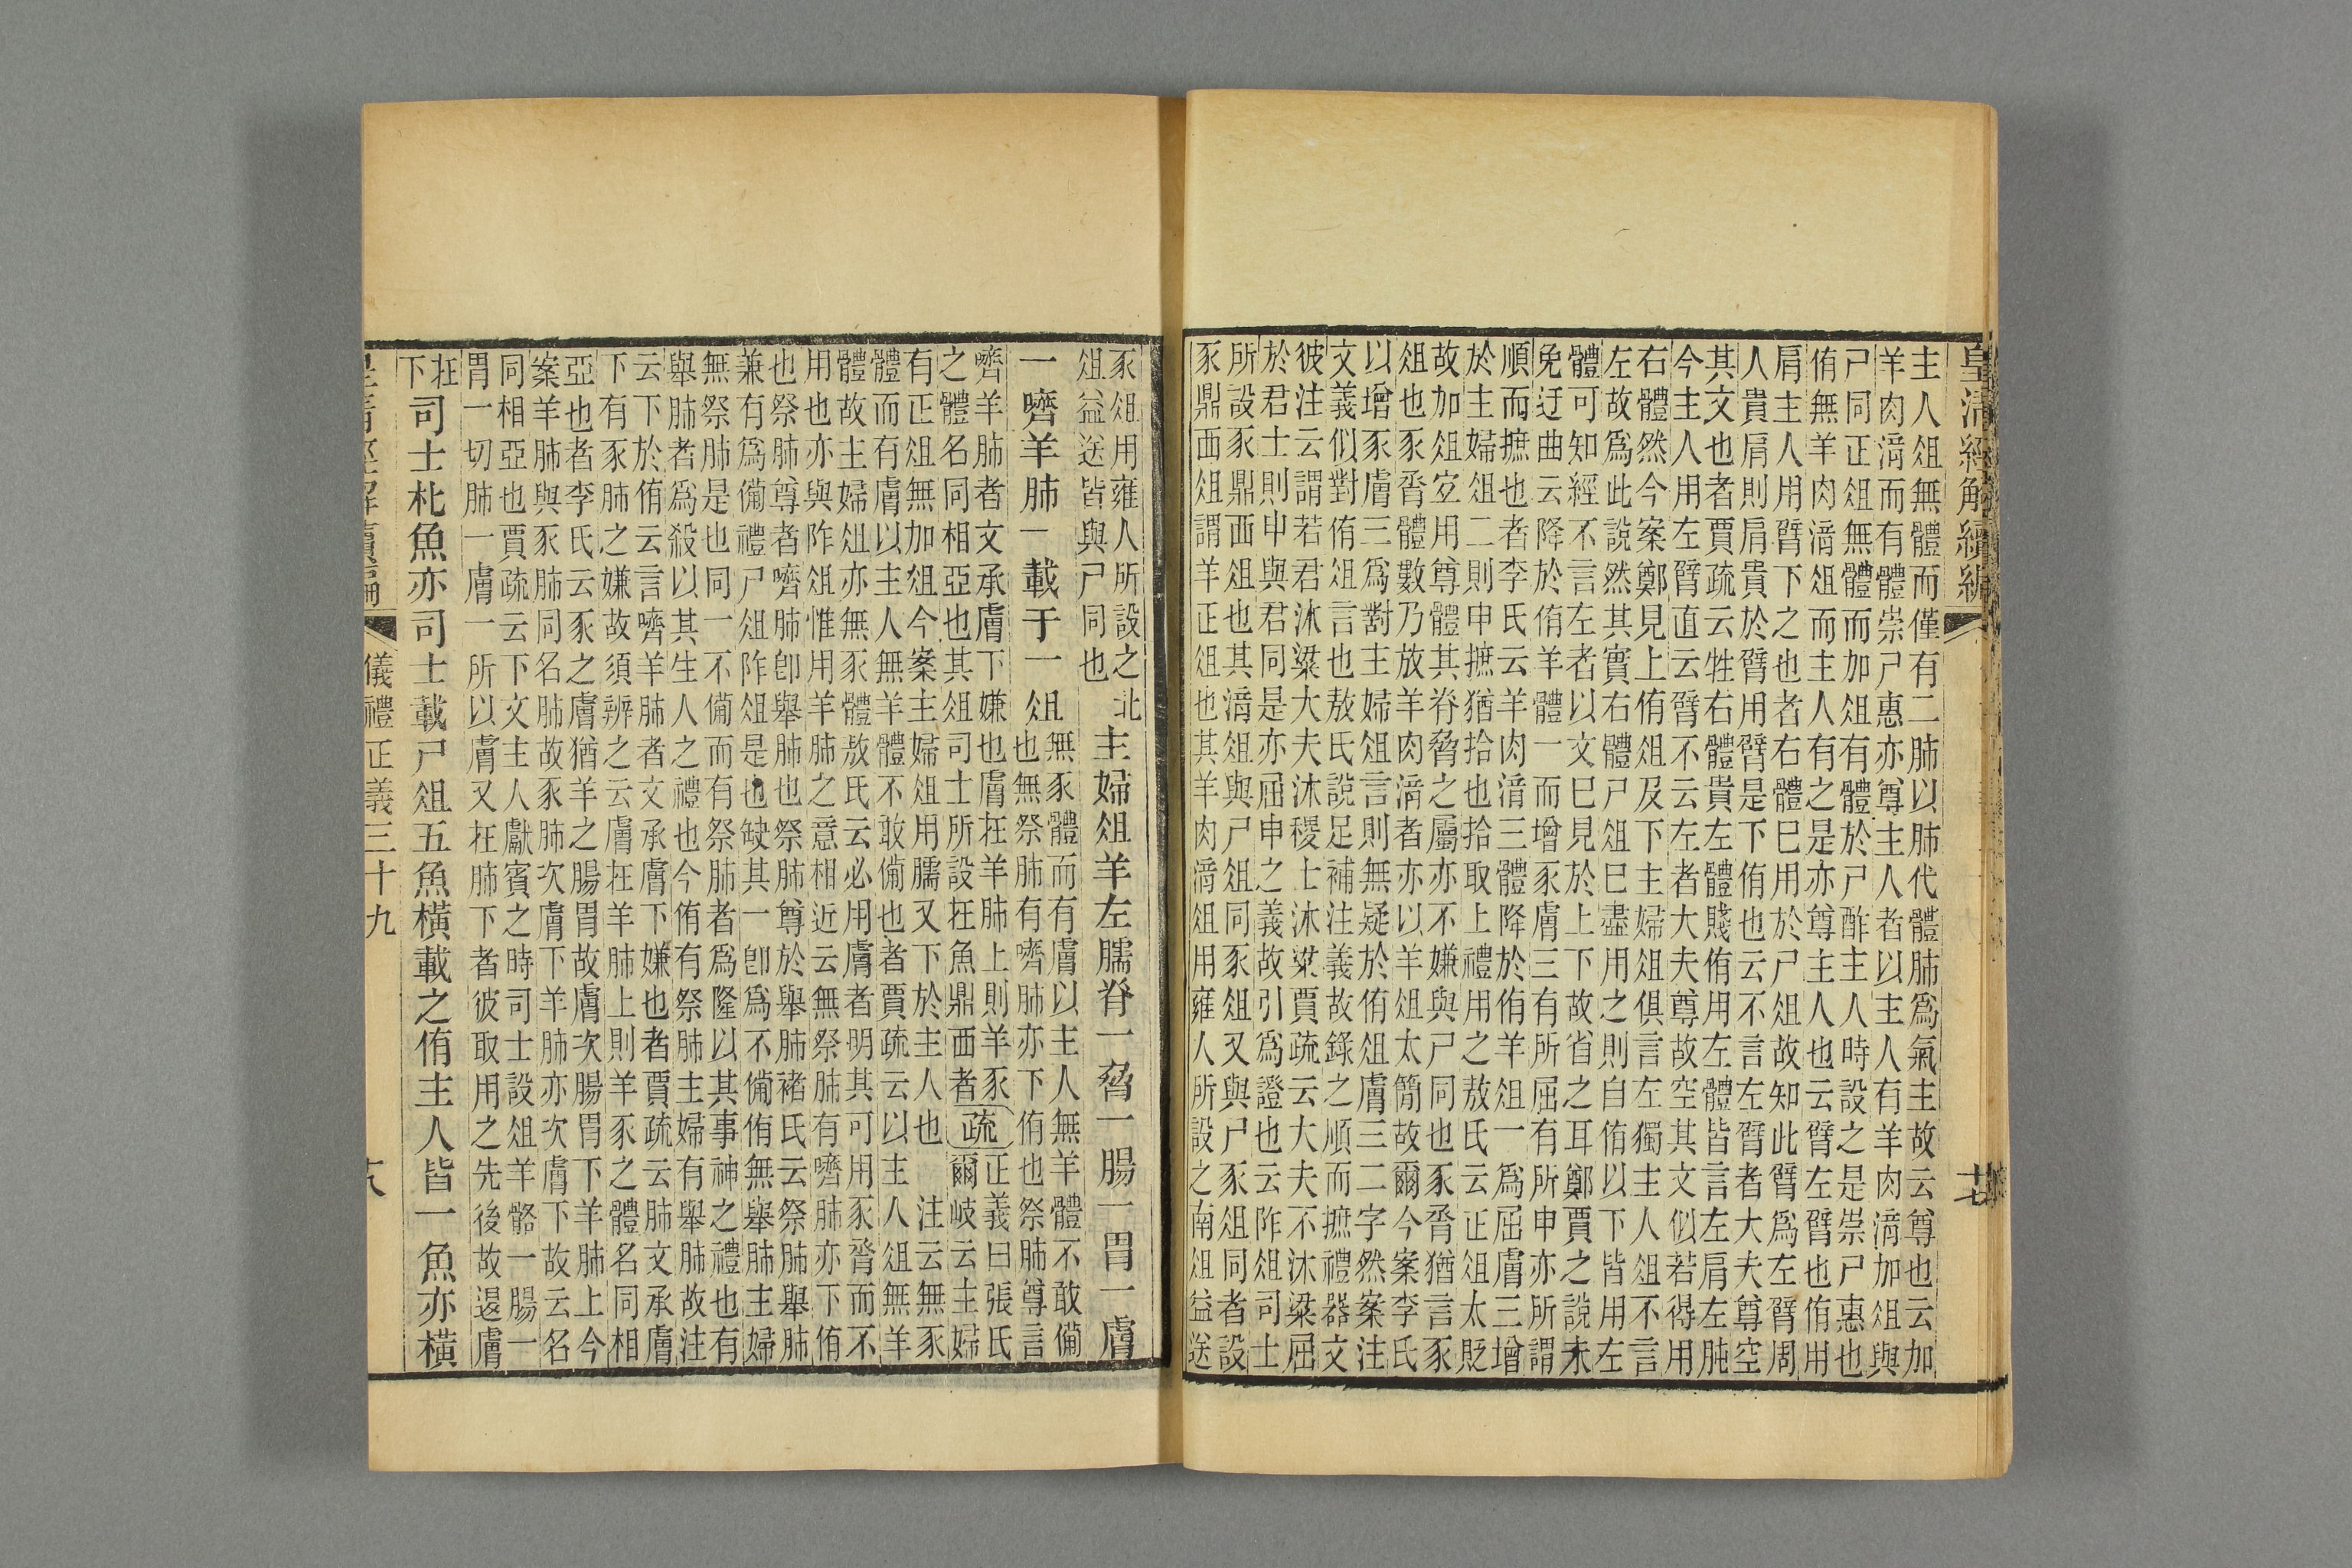 皇清經解續編
十七
主人俎無體而僅有二肺以肺代體肺爲氣主故云尊也云加
羊肉湇而有體崇尸惠亦尊主人者以主人有羊肉湇加俎與
尸同正俎無體而加俎有體於尸酢主人時設之是崇尸惠也
侑無羊肉湇俎而主人有之是亦尊主人也云臂左臂也侑用
肩主人用臂下之也者右體巳用於尸俎故知此臂爲左臂周
人貴肩則肩貴於臂用臂是下侑也云不言左臂者大夫尊空
其文也者賈疏云牲右體貴左體賤侑用左體皆言左肩左肫
今主人用左臂直云臂不云左者大夫尊故空其文似若得用
右體然今案鄭見上侑俎及下主婦俎俱言左獨主人俎不言
左故爲此說然其實右體尸俎巳盡用之則自侑以下皆用左
體可知經不言左者以文巳見於上下故省之耳鄭賈之說未
免迂曲云降於侑羊體一而增豕膚三有所屈有所申亦所謂
順而摭也者李氏云羊肉湇三體降於侑羊俎一爲屈膚三增
於主婦俎二則申摭猶拾也拾取上禮用之敖氏云正俎太貶
故加俎空用尊體其脊脅之屬亦不嫌與尸同也豕脀猶言豕
俎也豕脀體數乃放羊肉湇者亦以羊俎太簡故爾今案李氏
以增豕膚三爲對主婦俎言則無疑於侑俎膚三二字然案注
文義似對侑俎言也敖氏說足補注義故錄之順而摭禮器文
彼注云謂若君沐粱大夫沐稷士沐粱賈疏云大夫不沐粱屈
於君士則申與君同是亦屈申之義故引爲證也云阼俎司士
所設豕鼎西俎也其湇俎與尸俎同豕俎又與尸豕俎同者設
豕鼎西俎謂羊正俎也其羊肉湇俎用雍人所設之南俎益送
豕俎用雍人所設之北
俎益送皆與尸同也
主婦俎羊左臑脊一脅一腸一胃一膚
一嚌羊肺一載于一俎
無豕體而有膚以主人無羊體不敢備
也無祭肺有嚌肺亦下侑也祭肺尊言
嚌羊肺者文承膚下嫌也膚在羊肺上則羊豕
之體名同相亞也其俎司士所設在魚鼎西者
疏
正義曰張氏
爾岐云主婦
有正俎無加俎今案主婦俎用臑又下於主人也　注云無豕
體而有膚以主人無羊體不敢備也者賈疏云以主人俎無羊
體故主婦俎亦無豕體敖氏云必用膚者明其可用豕脀而不
用也亦與阼俎惟用羊肺之意相近云無祭肺有嚌肺亦下侑
也祭肺尊者嚌肺卽舉肺也祭肺尊於舉肺褚氏云祭肺舉肺
兼有爲備禮尸俎阼俎是也缺其一卽爲不備侑無舉肺主婦
無祭肺是也同一不備而有祭肺者爲隆以其事神之禮也有
舉肺者爲殺以其生人之禮也今侑有祭肺主婦有舉肺故注
云下於侑云言嚌羊肺者文承膚下嫌也者賈疏云肺文承膚
下有豕肺之嫌故須辨之云膚在羊肺上則羊豕之體名同相
亞也者李氏云豕之膚猶羊之腸胃故膚次腸胃下羊肺上今
案羊肺與豕肺同名肺故豕肺次膚下羊肺亦次膚下故云名
同相亞也賈疏云下文主人獻賓之時司士設俎羊骼一腸一
胃一切肺一膚一所以膚又在肺下者彼取用之先後故退膚
在
下
司士朼魚亦司士載尸俎五魚橫載之侑主人皆一魚亦橫
儀禮正義三十九